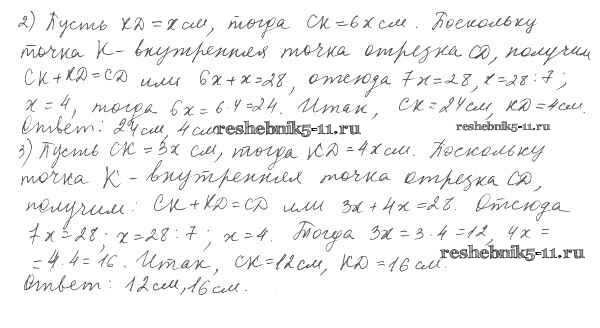 2) Пусть KD = x см, тогда CK = 6x см. Поскольку
точка K - внутренняя точка отрезка CD, получим
CK + KD = CD или 6x + x = 28, отсюда 7x = 28, x = 28 : 7;
x = 4, тогда 6x = 6·4 = 24. Итак, CK = 24 см, KD = 4 см.
Ответ: 24 см, 4 см
reshebnik5-11.ru reshebnik5-11.ru
3) Пусть CK = 3x см, тогда KD = 4x см. Поскольку
точка K - внутренняя точка отрезка CD,
получим: CK + KD = CD или 3x + 4x = 28. Отсюда
7x = 28; x = 28 : 7; x = 4. Тогда 3x = 3·4 = 12, 4x =
= 4·4 = 16. Итак, CK = 12 см, KD = 16 см.
reshebnik5-11.ru
Ответ: 12 см, 16 см.